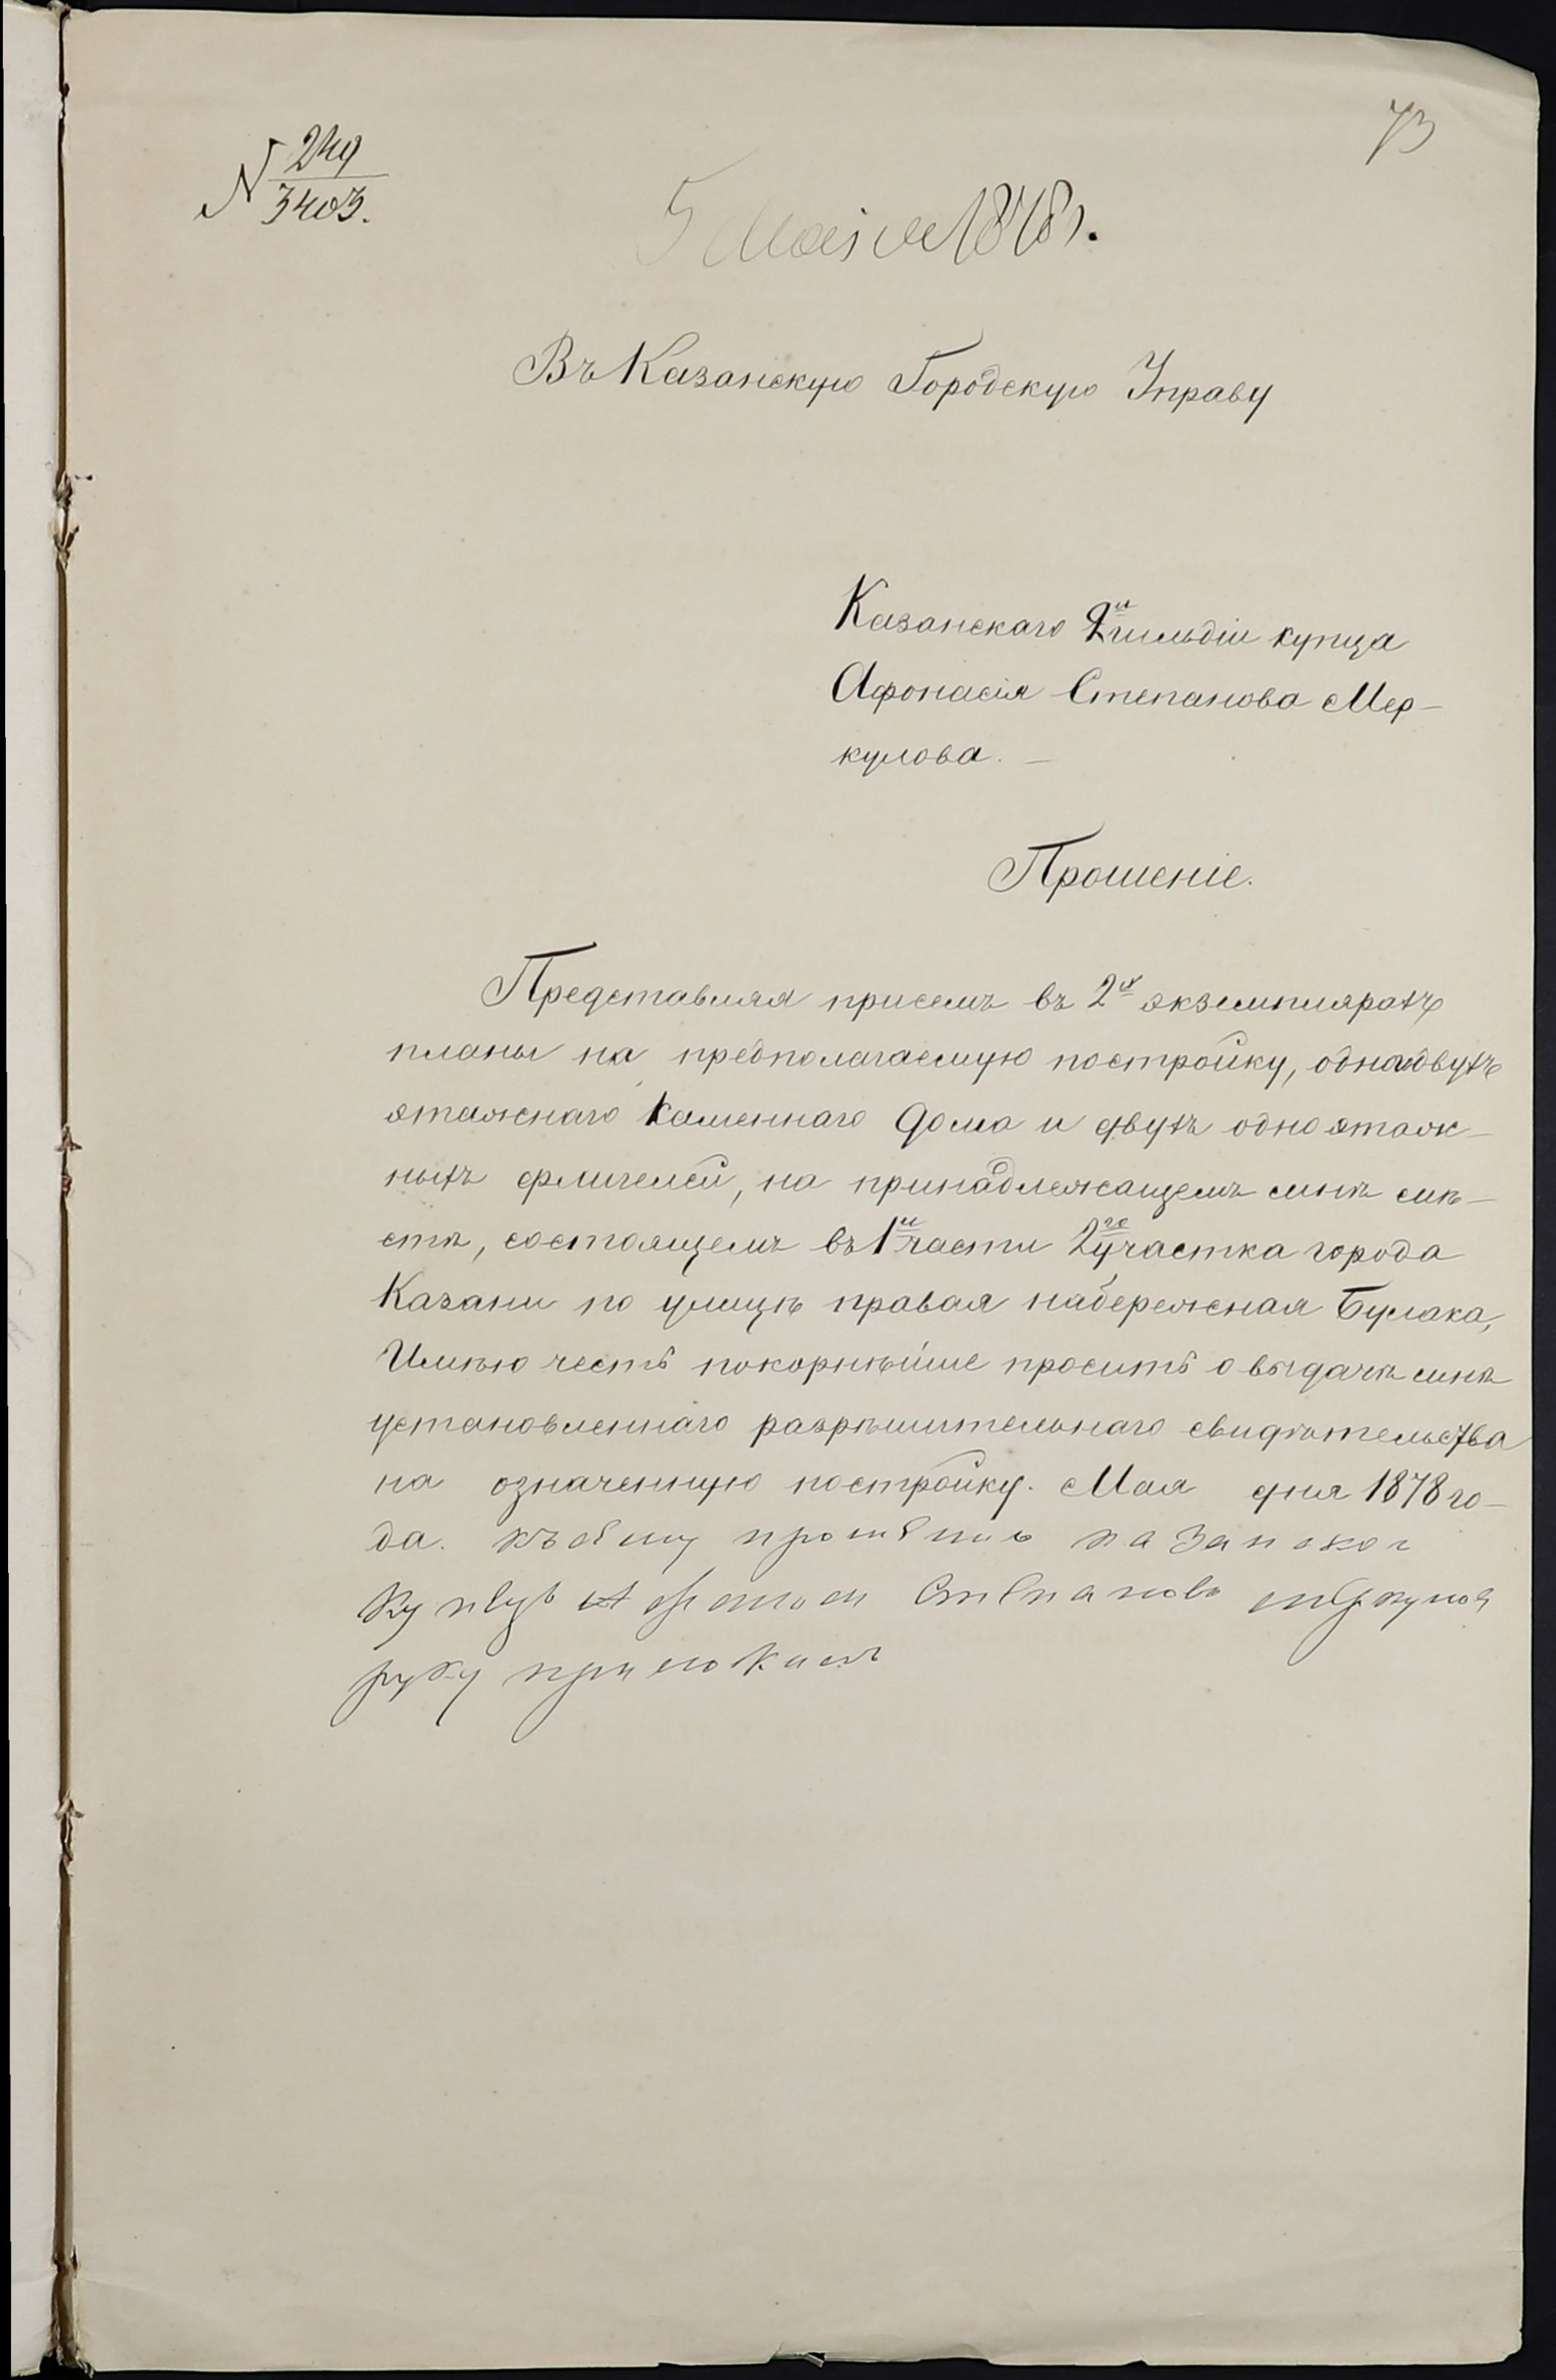 73
N 249
3403.
5 Мая 1878 г.
Въ Казанскую Городскую Управу
Казанскаго 2й гильдіи купца
Афонасія Степанова Мер-
кулова. —
Прошеніе.
Представляя присемъ въ 2х экземплярахъ
планы на предполагаемую постройку, одного двухъ
этажнаго каменнаго дома и двухъ одноэтаж-
ныхъ флигелей, на принадлежащемъ мнѣ мѣ-
стѣ, состоящемъ въ 1й части 2го участка города
Казани по улицѣ правая набережная Булака,
Имѣю честь покорнѣйше просить о выдачѣ мнѣ
установленнаго разрѣшительнаго свидѣтельства
на означенную постройку. Мая дня 1878 го-
да. къ сему прошению казанской
купецъ Афонасей Степановъ Меркулов
руку приложилъ